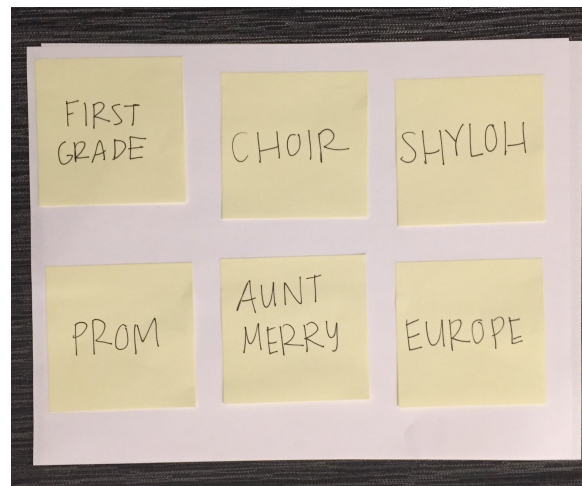 FIRST
GRADE
CHOIR
SHYLOH
PROM
AUNT
MERRY
EUROPE